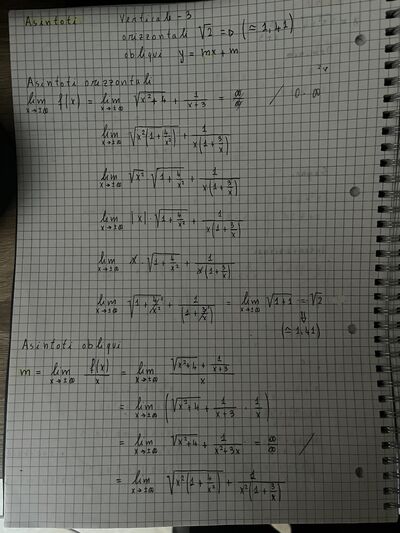 Asintoti Verticale - 3
orizzontale √2 => (≃ 1,41)
obliqui y = mx + m
Asintoti orizzontali
lim x→±∞ f(x) = lim x→±∞ √(x²+4) + 1/(x+3) = ∞/∞ / 0·∞
lim x→±∞ √(x²(1+4/x²)) + 1/(x(1+3/x))
lim x→±∞ √x² · √(1+4/x²) + 1/(x(1+3/x))
lim x→±∞ |x| · √(1+4/x²) + 1/(x(1+3/x))
lim x→±∞ x · √(1+4/x²) + 1/(x(1+3/x))
lim x→±∞ √(1+4/x²) + 1/(1+3/x) = lim x→±∞ √(1+1) = √2
(≃ 1,41)
Asintoti obliqui
m = lim x→±∞ f(x)/x = lim x→±∞ (√(x²+4) + 1/(x+3))/x
= lim x→±∞ (√(x²+4) + 1/(x+3) · 1/x)
= lim x→±∞ √(x²+4) + 1/(x²+3x) = ∞/∞ /
= lim x→±∞ √(x²(1+4/x²)) + 1/(x²(1+3/x))